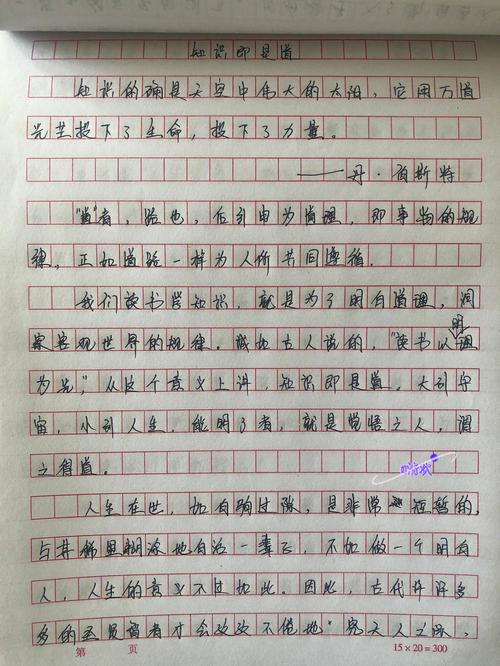 知识即是道
知识的确是天空中伟大的太阳，它用万道
光芒投下了生命，投下了力量。
——丹·伯斯特
"道"者，路也，后引申为道理，即事物的规
律，正如道路一样为人所共同遵循。
我们读书学知识，就是为了明白道理，洞
察客观世界的规律。诚如古人说的，"读书以明理
为先"，从这个意义上讲，知识即是道。大到宇
宙，小到人生，能明了者，就是觉悟之人，谓
之得道。
人生在世，如白驹过隙，是非常短暂的，
与其稀里糊涂地白活一辈子，不如做一个明白
人，人生的意义不过如此。因此，古代许许多
多的圣贤者才会孜孜不倦地"究天人之际，
第 页
15×20=300